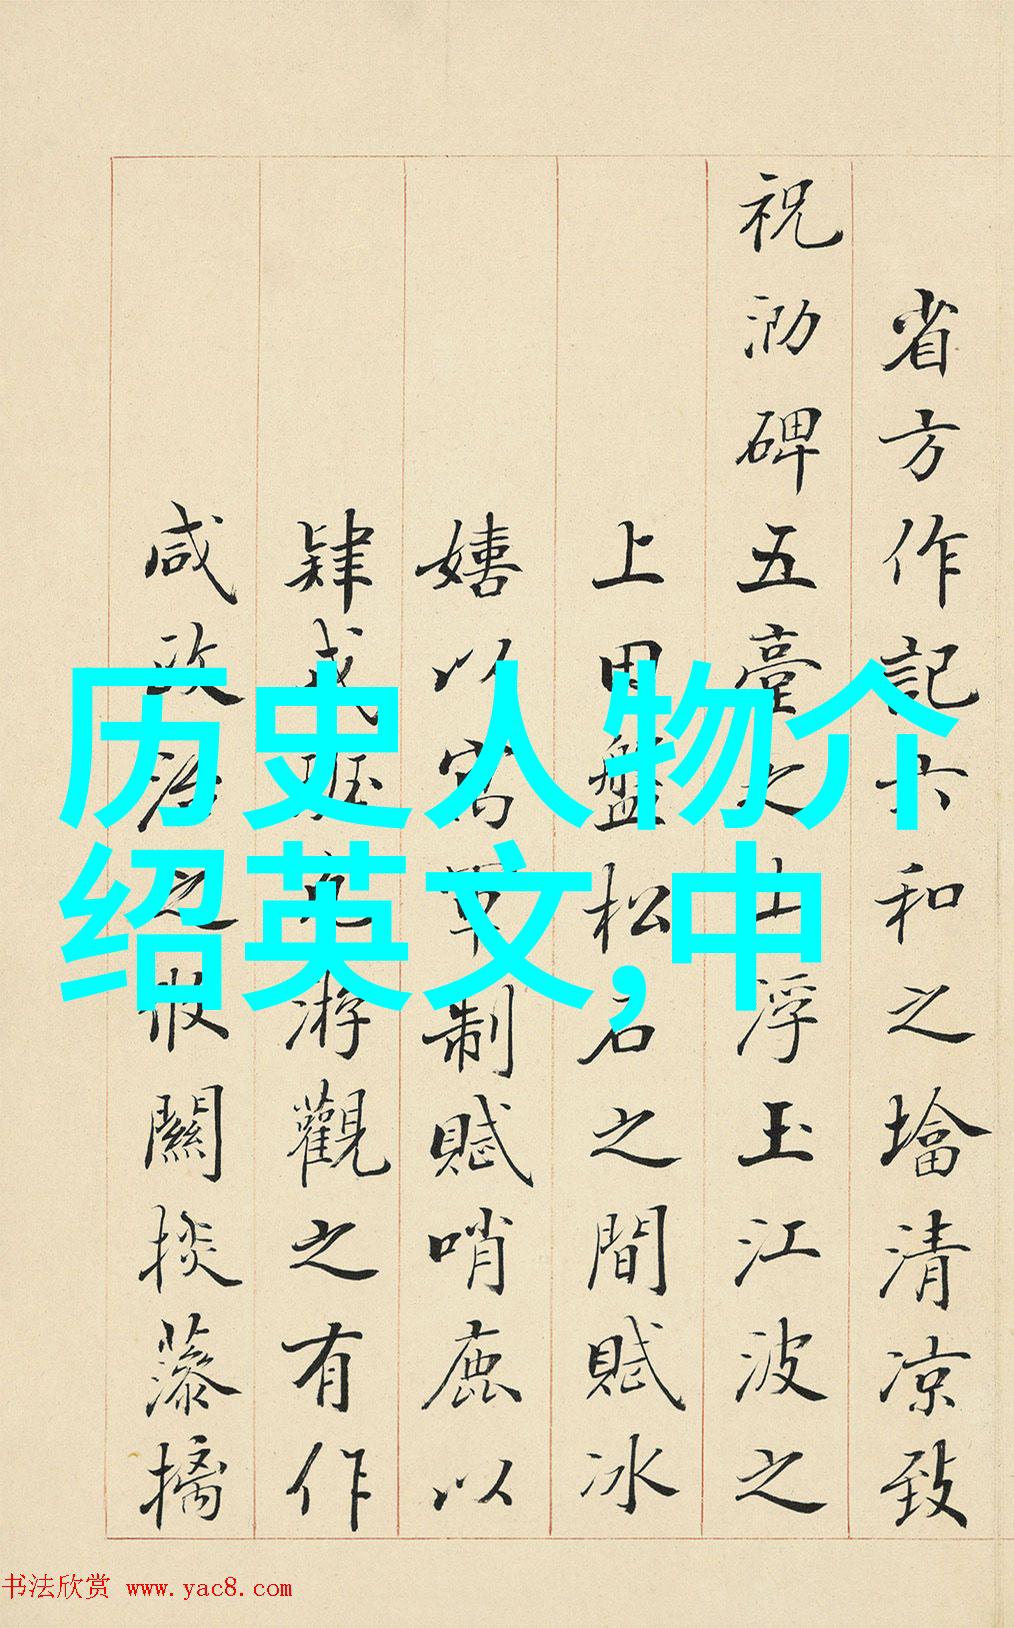 省方作記六和之墖清涼致
祝泐碑五臺之山浮玉江波之
上田盤松石之間賦冰
嬉以寓制賦哨鹿以
肄游觀之有作
咸政治之攸關掞藻摛
历史人物介
绍英文,中
书法欣赏 www.yac8.com